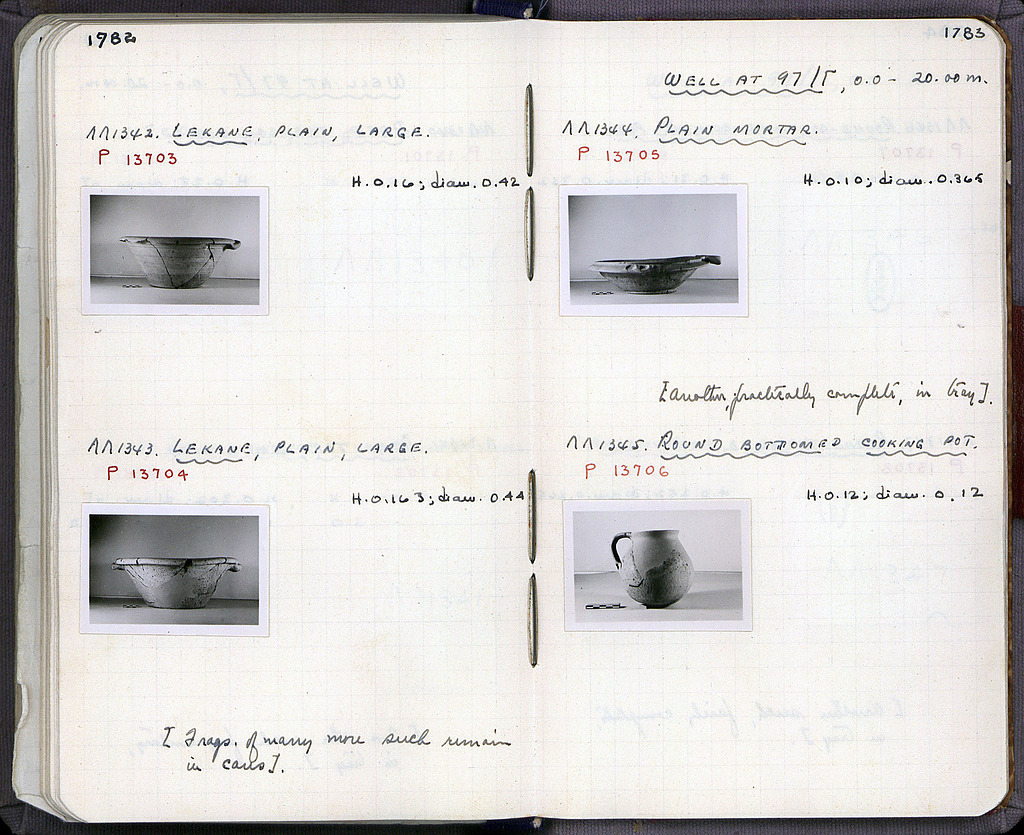 1782
ΛΛ1342. LEKANE, PLAIN, LARGE.
P 13703
H. 0.16; diam. 0.42
ΛΛ1343. LEKANE, PLAIN, LARGE.
P 13704
H. 0.163; diam. 0.44
[Frags. of many more such remain
in cans].
1783
WELL AT 97/Γ, 0.0 - 20.00 m.
ΛΛ1344. PLAIN MORTAR.
P 13705
H. 0.10; diam. 0.365
[another, practically complete, in tray].
ΛΛ1345. ROUND BOTTOMED COOKING POT.
P 13706
H. 0.12; diam. 0.12